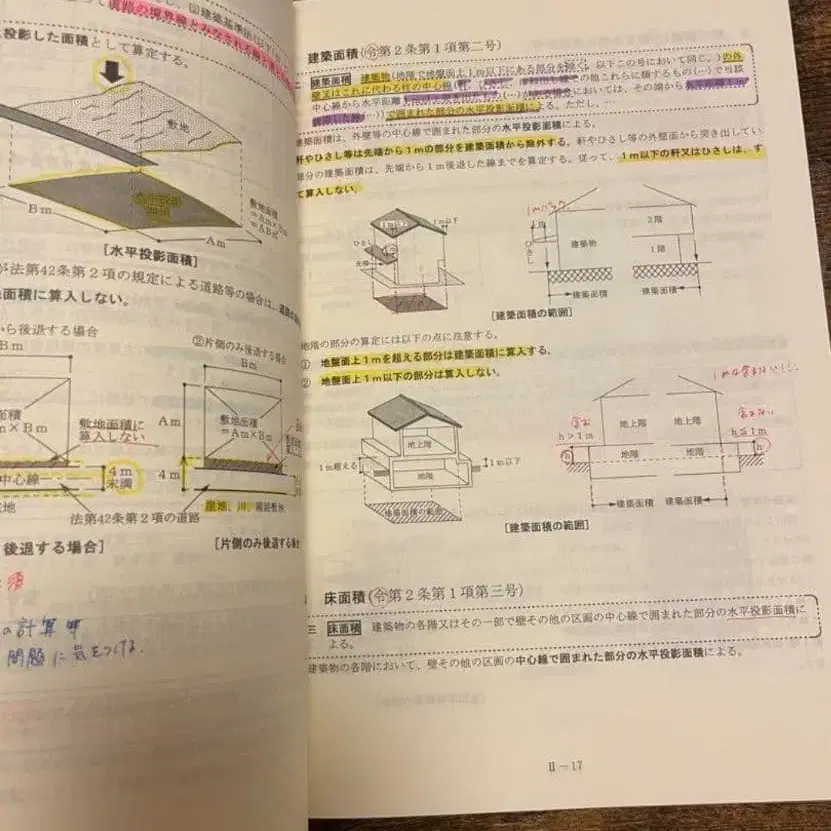 道路の境界線とみなされる線と道
図建築基準法
水投影した面積として算定する。
敷地
水平投影
Bm
Am
敷地面積
=Am×Bm
=ABm²
[水平投影面積]
が法第42条第2項の規定による道路等の場合は、道路の
面積に算入しない。
から後退する場合
Bm
②片側のみ後退する場合
Bm
面積
m×Bm
敷地面積に
算入しない
Am
敷地面積
=Am×Bm
中心線
4m
未満
4m
法第42条第2項の道路
崖地、川、線路敷地
後退する場合]
[片側のみ後退する場合
須
の計算や
問題に気をつける.
建築面積(令第2条第1項第二号)
二 建築面積 建築物(地階で地盤面上1m以下にある部分を除く。以下この号において同じ。)の外
壁又はこれに代わる柱の中心線(軒、ひさし、
の他これらに類するもの(…)で当該
中心線から水平距離
においては、その端から
で囲まれた部分の水平投影面積による。ただし、…
建築面積は、外壁等の中心線で囲まれた部分の水平投影面積による。
軒やひさし等は先端から1mの部分を建築面積から除外する。軒やひさし等の外壁面から突き出してい
部分の建築面積は、先端から1m後退した線までを算定する。従って、1m以下の軒又はひさしは、す
て算入しない。
1m以下
1m以下
ひさし
先端
1mバック
1m
ひさし
建築物
2階
1階
建築面積
建築面積
[建築面積の範囲]
地階の部分の算定には以下の点に注意する。
① 地盤面上1mを超える部分は建築面積に算入する。
② 地盤面上1m以下の部分は算入しない。
1mは含まない
地上階
地階
1m超える
1m以下
建築面積の範囲
含む
h>1m
h
地上階
地上階
地階
地階
含まない
h≦1m
h
建築面積
建築面積
[建築面積の範囲]
床面積(令第2条第1項第三号)
三 床面積 建築物の各階又はその一部で壁その他の区画の中心線で囲まれた部分の水平投影面積に
よる。
建築物の各階において、壁その他の区画の中心線で囲まれた部分の水平投影面積による。
II－17